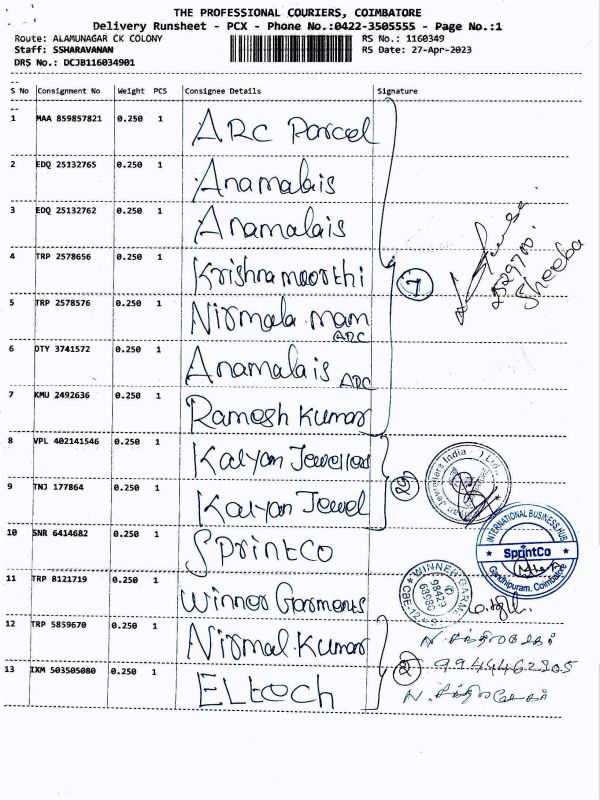 THE PROFESSIONAL COURIERS, COIMBATORE
Delivery Runsheet - PCX - Phone No.:0422-3505555 - Page No.:1
Route: ALAMUNAGAR CK COLONY
RS No.: 1160349
Staff: SSHARAVANAN
RS Date: 27-Apr-2023
DRS No.: DCJB116034901
S No Consignment No Weight PCS Consignee Details Signature
1 MAA 859857821 0.250 1 ARC Parcel
2 EDQ 25132765 0.250 1 Anamalais
3 EDQ 25132762 0.250 1 Anamalais
4 TRP 2578656 0.250 1 Krishnamoorthi
7
Sheeba
5 TRP 2578576 0.250 1 Nirmala mam
ARC
6 OTY 3741572 0.250 1 Anamalais ARC
7 KMU 2492636 0.250 1 Ramesh Kumar
8 VPL 402141546 0.250 1 Kalyan Jewellers
9 TNJ 177864 0.250 1 Kalyan Jewel
10 SNR 6414682 0.250 1 Sprintco
INTERNATIONAL BUSINESS HUB
SprintCo
Gandhipuram, Coimbatore
11 TRP 8121719 0.250 1 Winner Garments
WINNER GARM
98429
12 TRP 5859670 0.250 1 Nirmal Kumar
2
13 IXM 503505080 0.250 1 ELtech